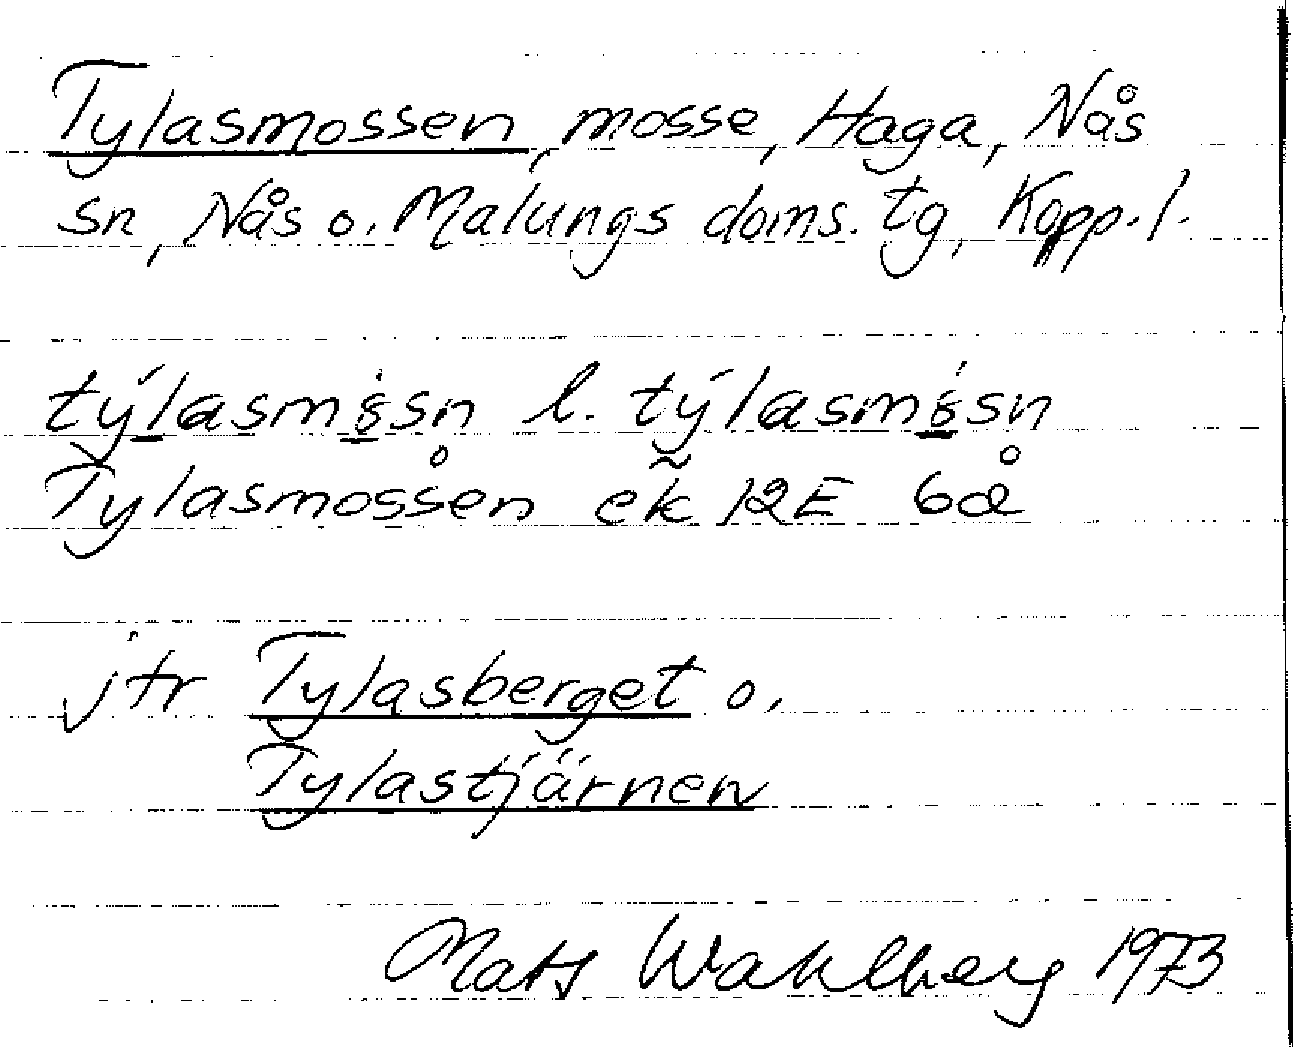 Tylasmossen, mosse, Haga, Nås
sn, Nås o. Malungs doms. tg, Kopp. l.
týlasm 8̇sn l. týlasm 8̇sn
Tylasmossen ek 12E 6a
jfr Tylasberget o.
Tylastjärnen
Mats Wahlberg 1973